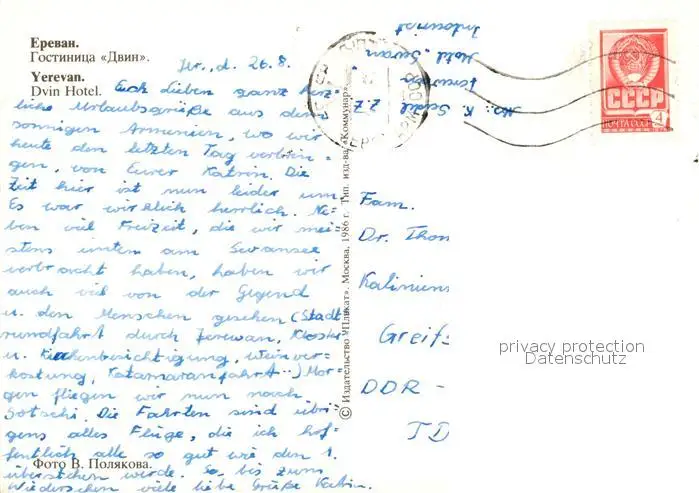 Ереван.
Гостиница «Двин».
Yerevan.
Dvin Hotel.
Jer., d. 26.8.
Euch Lieben ganz herz-
liche Urlaubsgrüße aus dem
sonnigen Armenien, wo wir
heute den letzten Tag verbrin-
gen, von Eurer Katrin. Die
Zeit hier ist nun leider um
Es war wirklich herrlich. Ne-
ben viel Freizeit, die wir mei-
stens unten am Sewansee
verbracht haben, haben wir
auch viel von der Gegend
u. den Menschen gesehen (Stadt
rundfahrt durch Jerewan, Kloster
u. Kirchenbesichtigung, Weinver-
kostung, Katamaranfahrt..) Mor-
gen fliegen wir nun nach
Sotschi. Die Fahrten sind übri-
gens alles Flüge, die ich hof-
fentlich alle so gut wie den 1.
überstehen werde. So, bis zum
Wiedersehen viele liebe Grüße Katrin.
Фото В. Полякова.
© Издательство «Плакат». Москва. 1986 г. Тип. изд-ва «Коммунар».
K.
z. Z.
Jerewan
Hotel
Intourist
СССР
ПОЧТА СССР
4
Fam.
Dr. Thom
Kalinin
Greifs
DDR -
privacy protection
Datenschutz